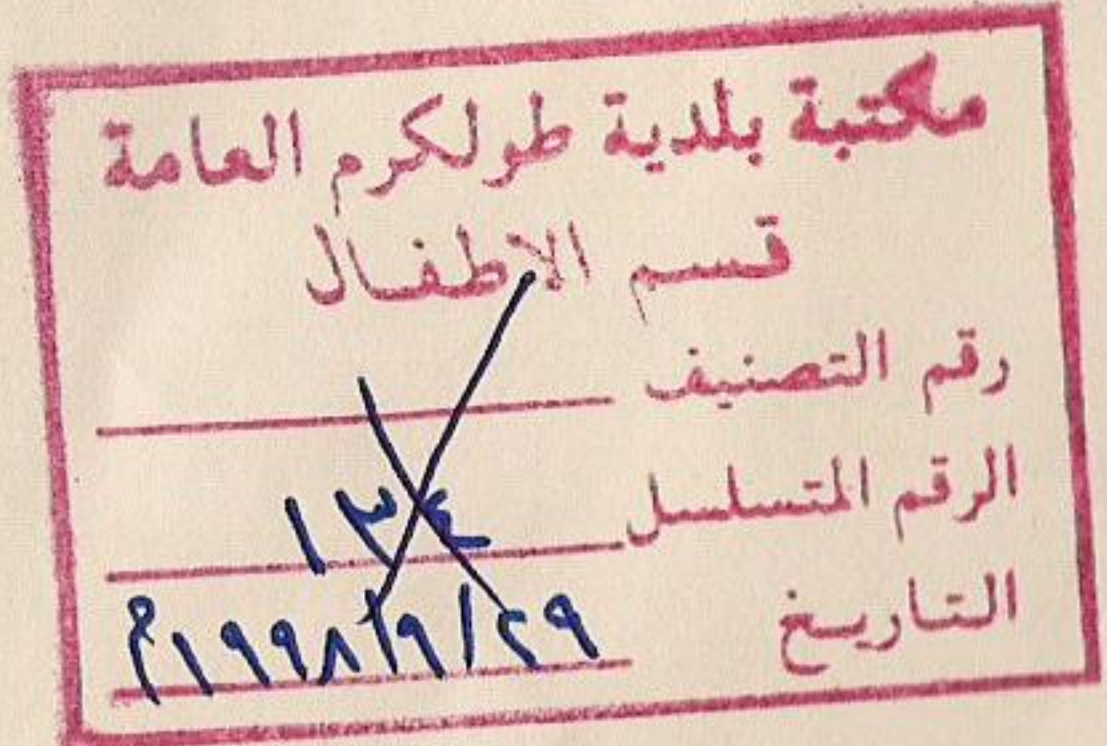 مكتبة بلدية طولكرم العامة
قسم الاطفال
رقم التصنيف
الرقم المتسلسل ١٣٤
التاريخ ٢٩/٩/١٩٩٨م